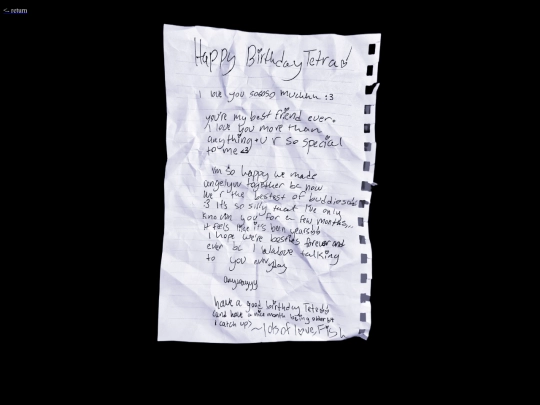 <- return
Happy Birthday Tetra
I love you sososo muchhh :3
you're my best friend ever.
I love you more than
anything. U r so special
to me <3
I'm so happy we made
together bc now
we r the bestest of buddies
:3 It's so silly that I've only
known you for a few months...
it feels like it's been years
I hope we're besties forever and
ever bc I love talking
to you everyday
anywayyy
have a good birthday Tetra
(and have a nice month being older b4
I catch up)
~lots of love, Fish